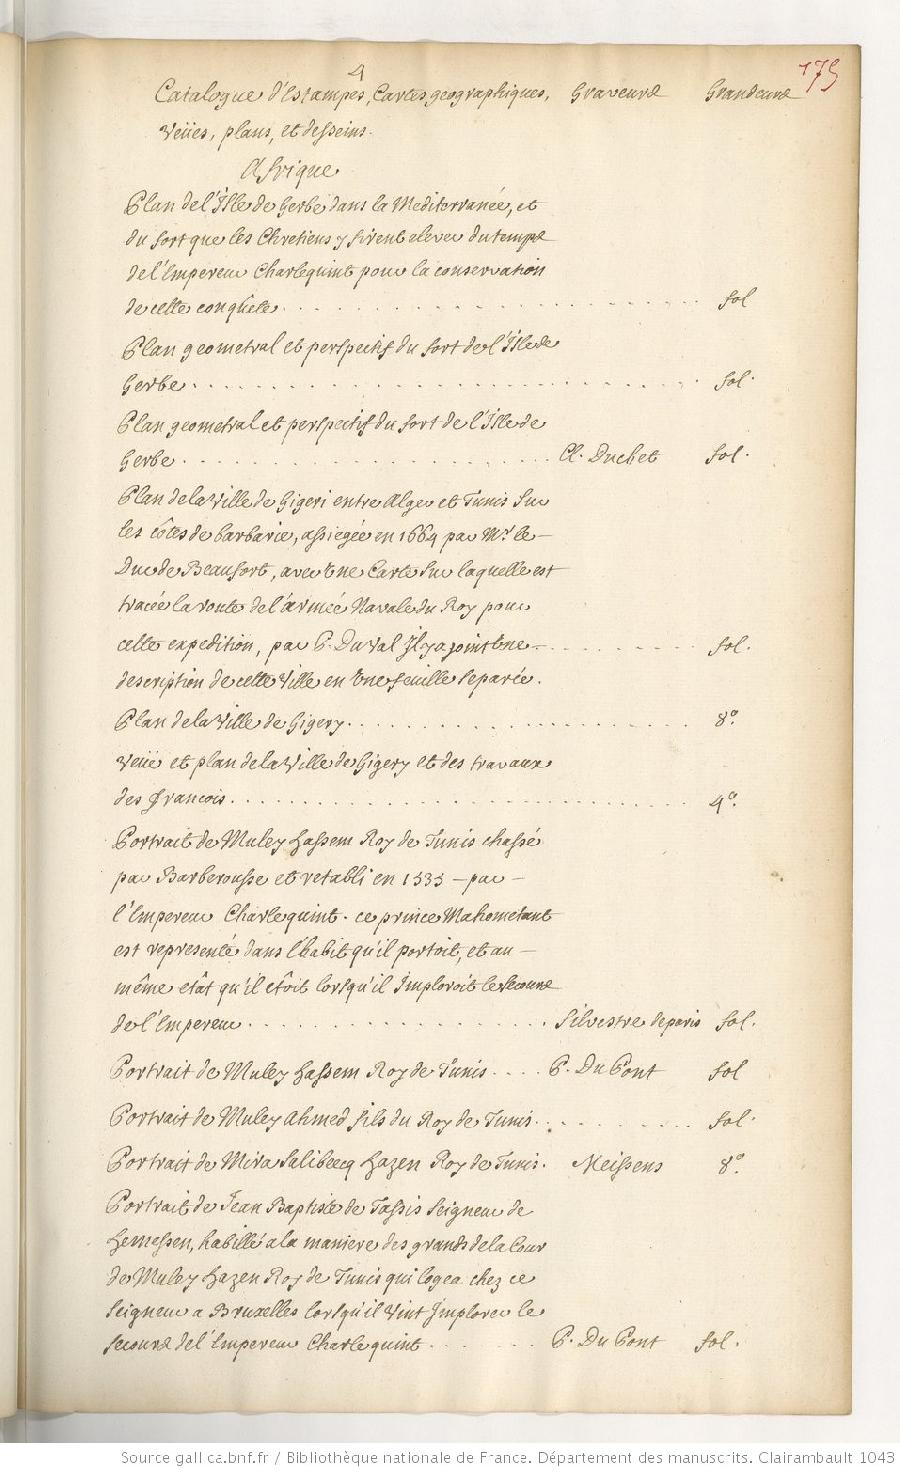 4
175
Catalogue d'Estampes, Cartes geographiques, Graveurs Grandeurs
Veües, plans, et desseins.
Afrique
Plan de l'Isle de Gerbe dans la Mediterranée, et
du fort que les Chretiens y firent elever du temps
de l'Empereur Charlequint pour la conservation
de cette conquête. fol
Plan geometral et perspectif du fort de l'Isle de
Gerbe. fol.
Plan geometral et perspectif du fort de l'Isle de
Gerbe. Cl. Duchet fol.
Plan de la Ville de Gigeri entre Alger et Tunis sur
les côtes de barbarie, assiegée en 1664 par Mr. le
Duc de Beaufort, avec Une Carte sur laquelle est
tracée la route de l'armée Navale du Roy pour
cette expedition, par P. Du Val Il y a joint Une fol.
description de cette Ville en Une feuille separée.
Plan de la Ville de Gigery. 8º
Veüe et plan de la Ville de Gigery et des travaux
des françois. 4º.
Portrait de Muley hassem Roy de Tunis chassé
par Barberousse et retabli en 1535 - par -
l'Empereur Charlequint. ce prince Mahometant
est representé dans l'habit qu'il portoit, et au -
même etât qu'il etoit lorsqu'il Imploroit le secours
de l'Empereur. Silvestre de paris fol.
Portrait de Muley hassem Roy de Tunis. P. Du Pont fol
Portrait de Muley Ahmed fils du Roy de Tunis. fol.
Portrait de Mira Salibecq hazen Roy de Tunis. Meissens 8º.
Portrait de Jean Baptiste de Tassis Seigneur de
hemessen, habillé a la maniere des grands de la Cour
de Muley hazen Roy de Tunis qui logea chez ce
seigneur a Bruxelles lorsqu'il Vint Implorer le
secours de l'Empereur Charlequint. P. Du Pont fol.
Source gallica.bnf.fr / Bibliothèque nationale de France. Département des manuscrits. Clairambault 1043